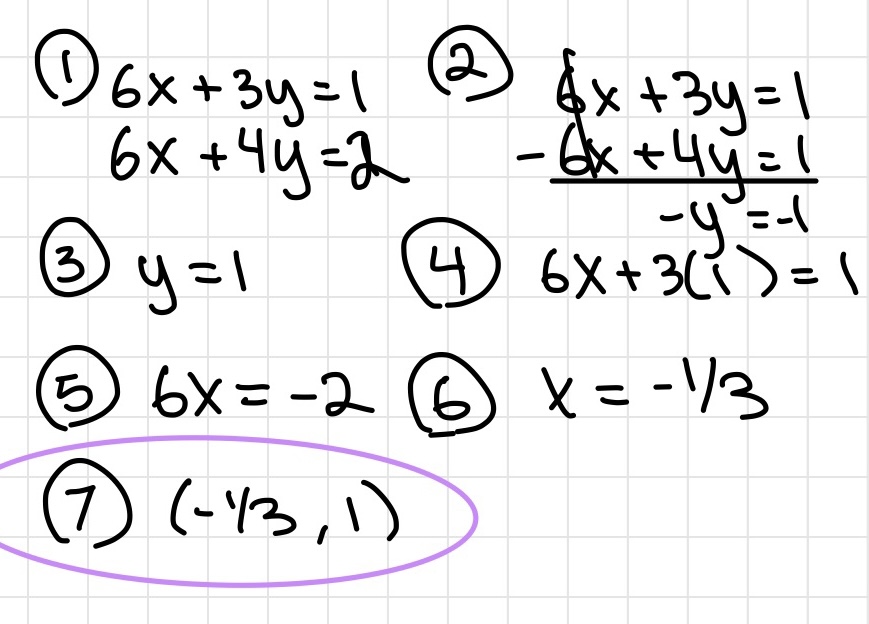 ① 6x + 3y = 1
6x + 4y = 2
② 6x + 3y = 1
- 6x + 4y = 1
-y = -1
③ y = 1
④ 6x + 3(1) = 1
⑤ 6x = -2
⑥ x = -1/3
⑦ (-1/3, 1)